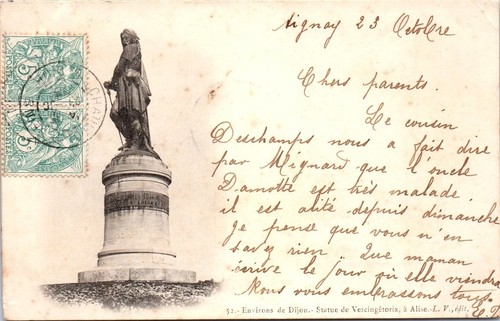 Aignay 23 Octobre
Chers parents.
Le cousin
Deschamps nous a fait dire
par Mignard que l'oncle
Damotte est très malade
il est alité depuis dimanche
Je pense que vous n'en
savez rien. Que maman
écrive le jour où elle viendra
Nous vous embrassons tous
52. - Environs de Dijon. - Statue de Vercingétorix, à Alise. - L. V., édit.